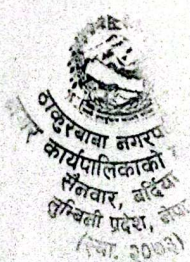 ठाकुरबाबा नगरप
कार्यपालिकाको
सैनवार, बर्दिया
लुम्बिनी प्रदेश,
(स्था. २०७३)